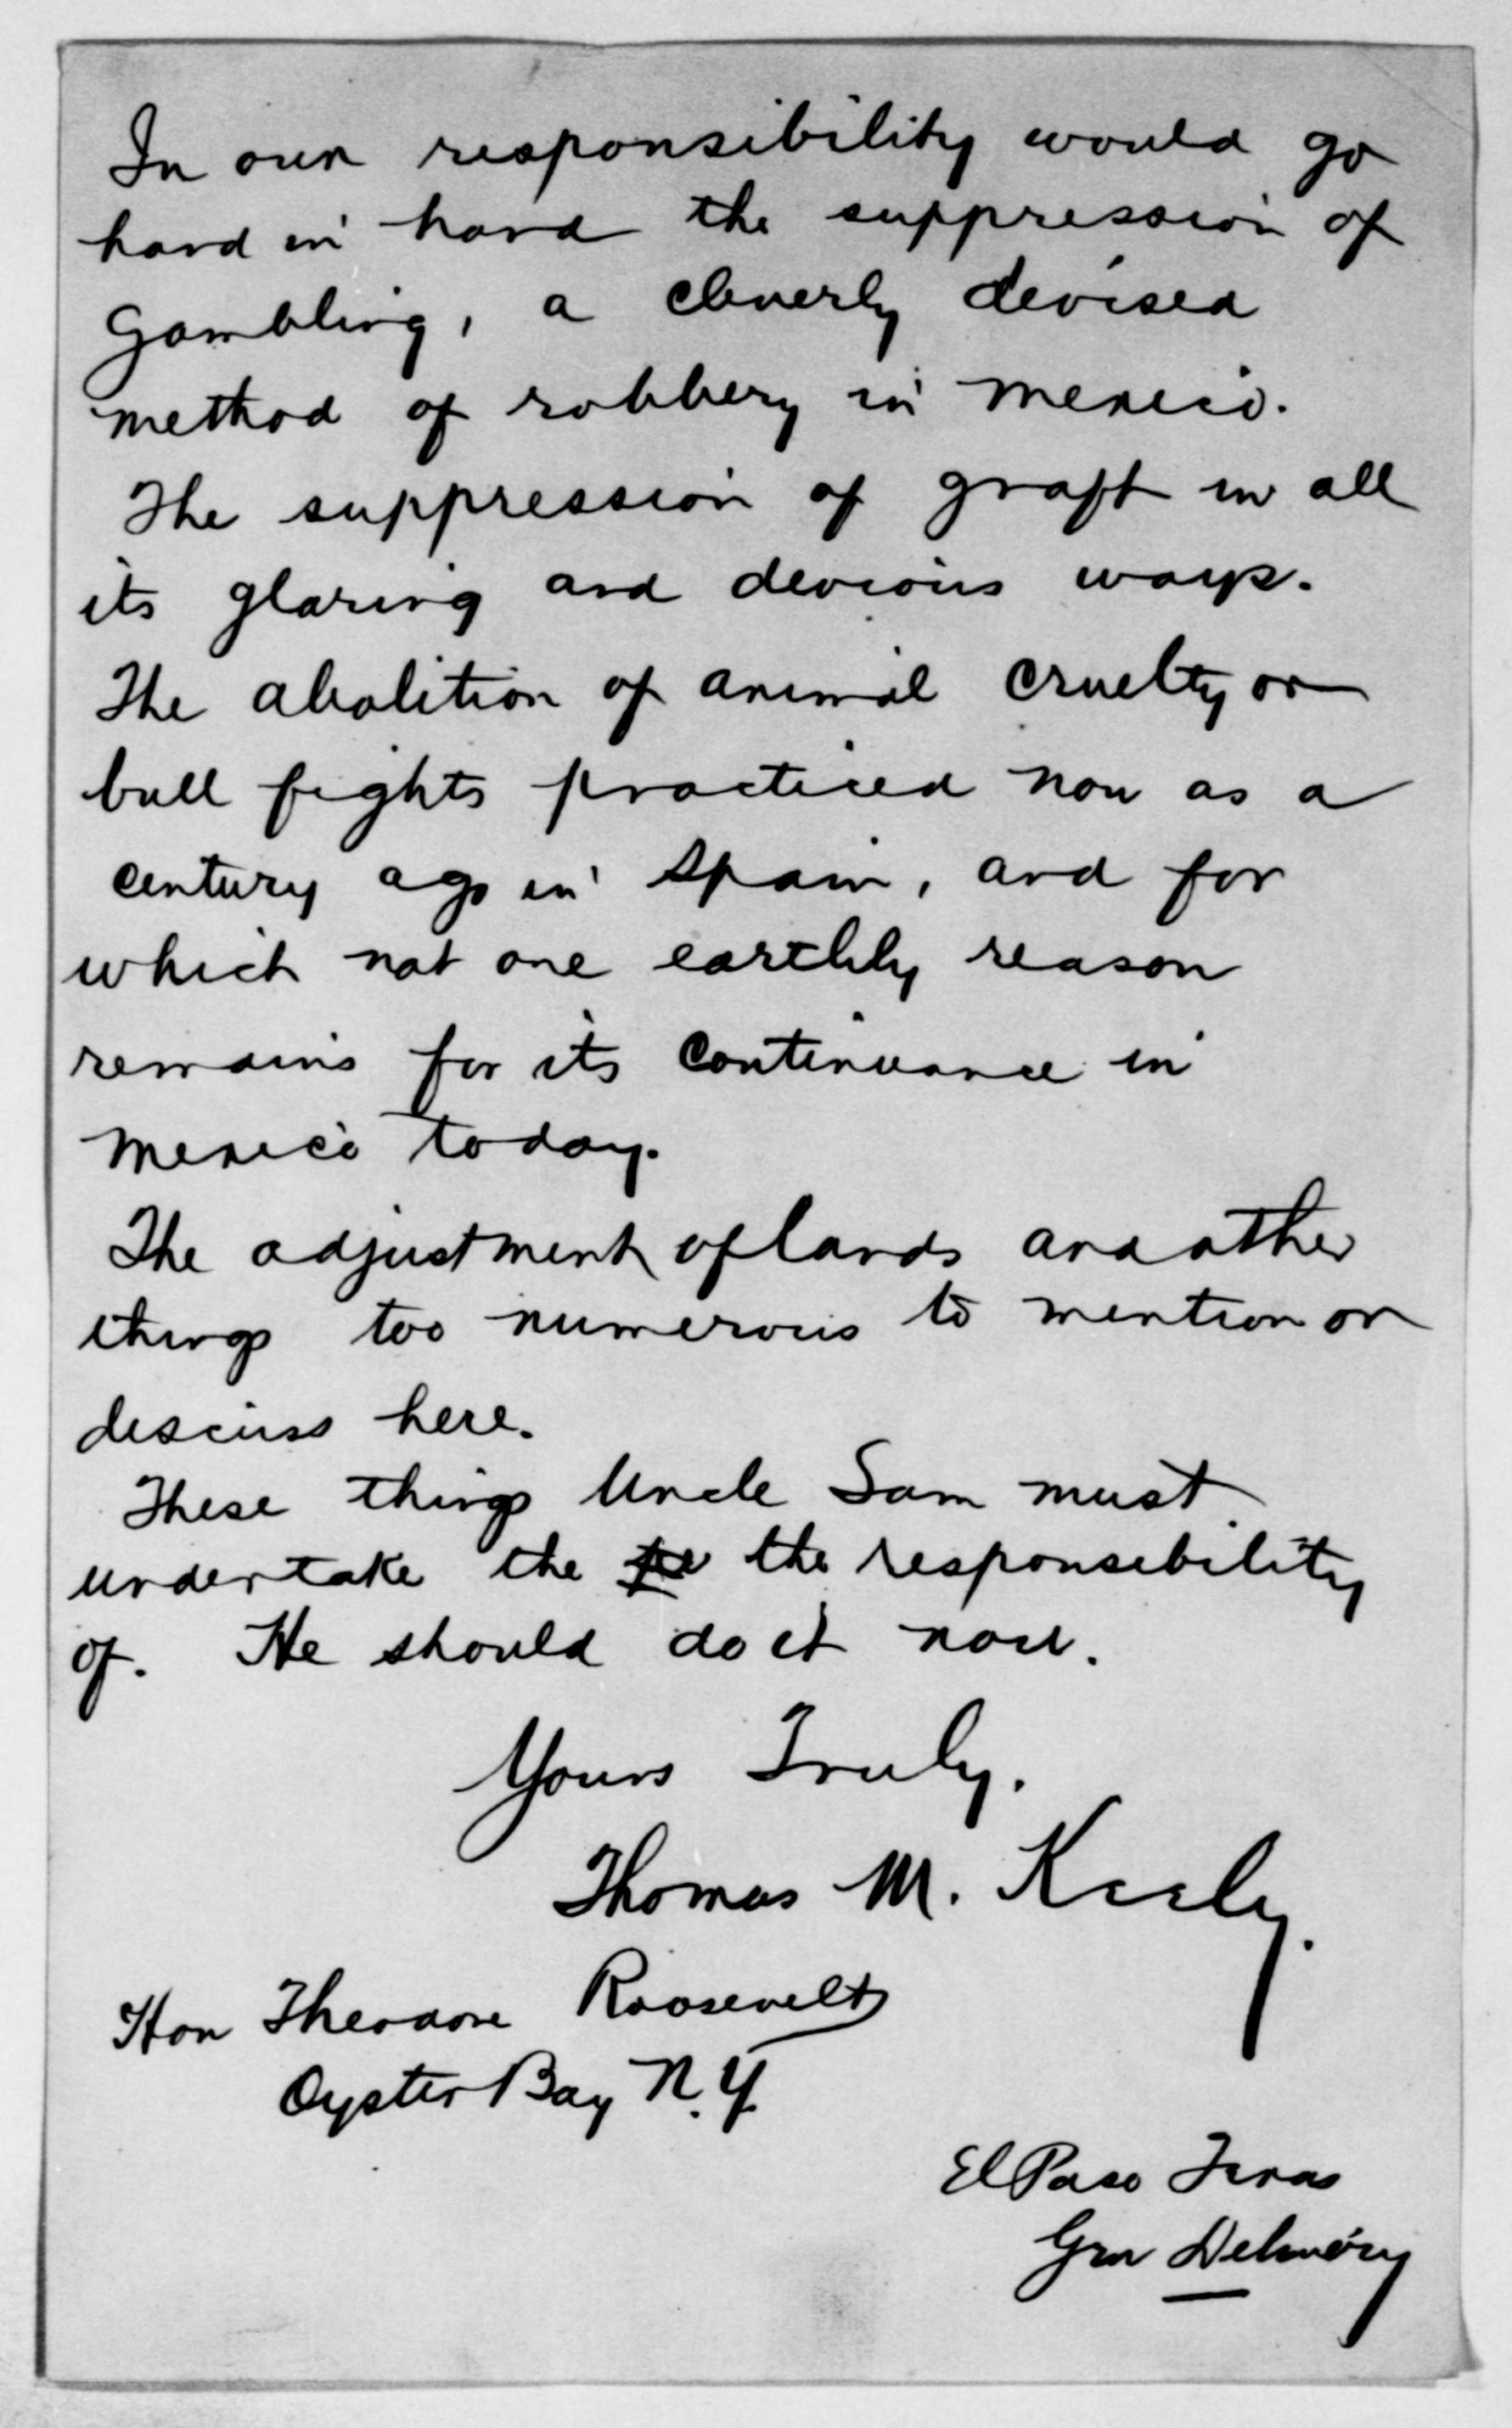 In our responsibility would go
hand in hand the suppression of
Gambling, a cleverly devised
method of robbery in Mexico.
The suppression of graft in all
its glaring and devious ways.
The abolition of animal cruelty or
bull fights practiced now as a
century ago in Spain, and for
which not one earthly reason
remains for its continuance in
Mexico today.
The adjustment of lands and other
things too numerous to mention or
discuss here.
These things Uncle Sam must
undertake the the responsibility
of. He should do it now.
Yours Truly.
Thomas M. Keely.
Hon Theodore Roosevelt
Oyster Bay N.Y.
El Paso Texas
Gen Delivery